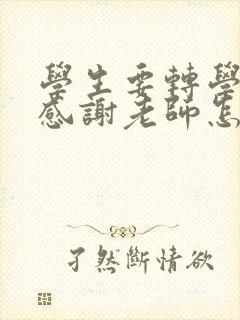 學生要轉學
感謝老師怎
孑然斷情欲